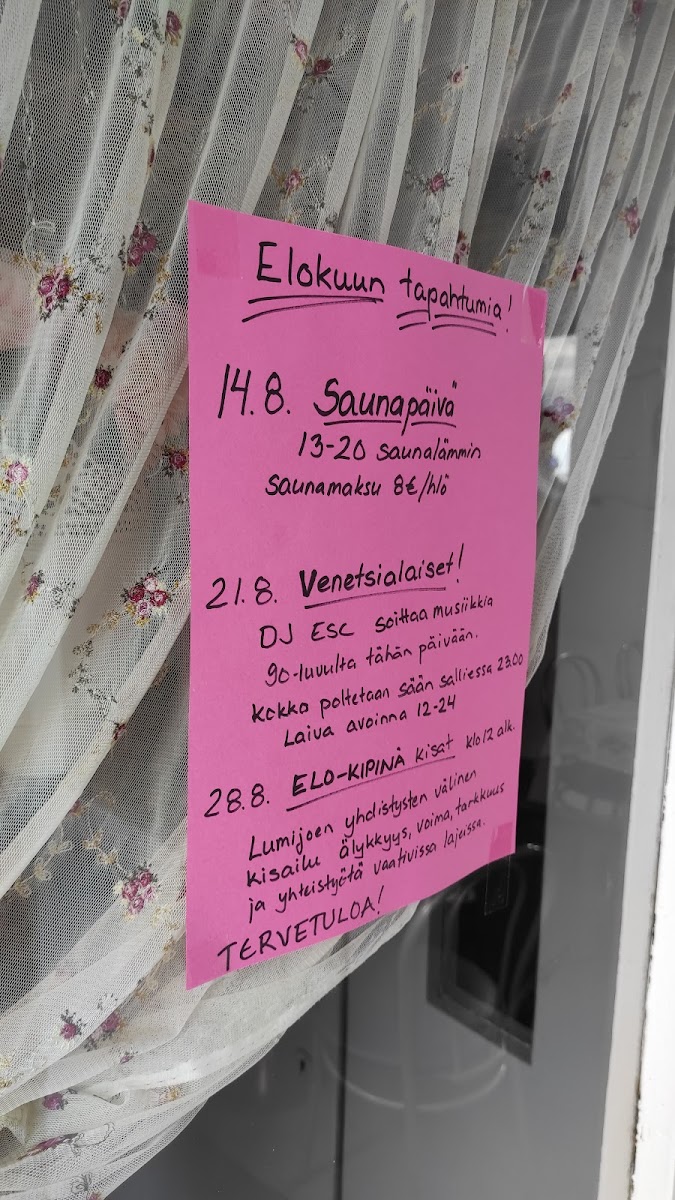 Elokuun tapahtumia!
14.8. Saunapäivä
13-20 saunalämmin
saunamaksu 8€/hlö
21.8. Venetsialaiset!
DJ ESC soittaa musiikkia
90-luvulta tähän päivään.
Kokko poltetaan sään salliessa 23.00
Laiva avoinna 12-24
28.8. ELO-KIPINÄ kisat klo 12 alk.
Lumijoen yhdistysten välinen
kisailu älykkyys, voima, tarkkuus
ja yhteistyötä vaativissa lajeissa.
TERVETULOA!